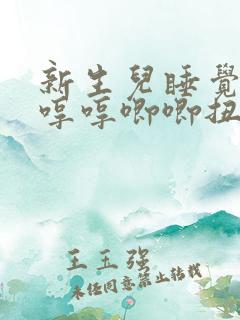 新生兒睡覺
哼哼唧唧扭
王玉强
未经同意禁止转载